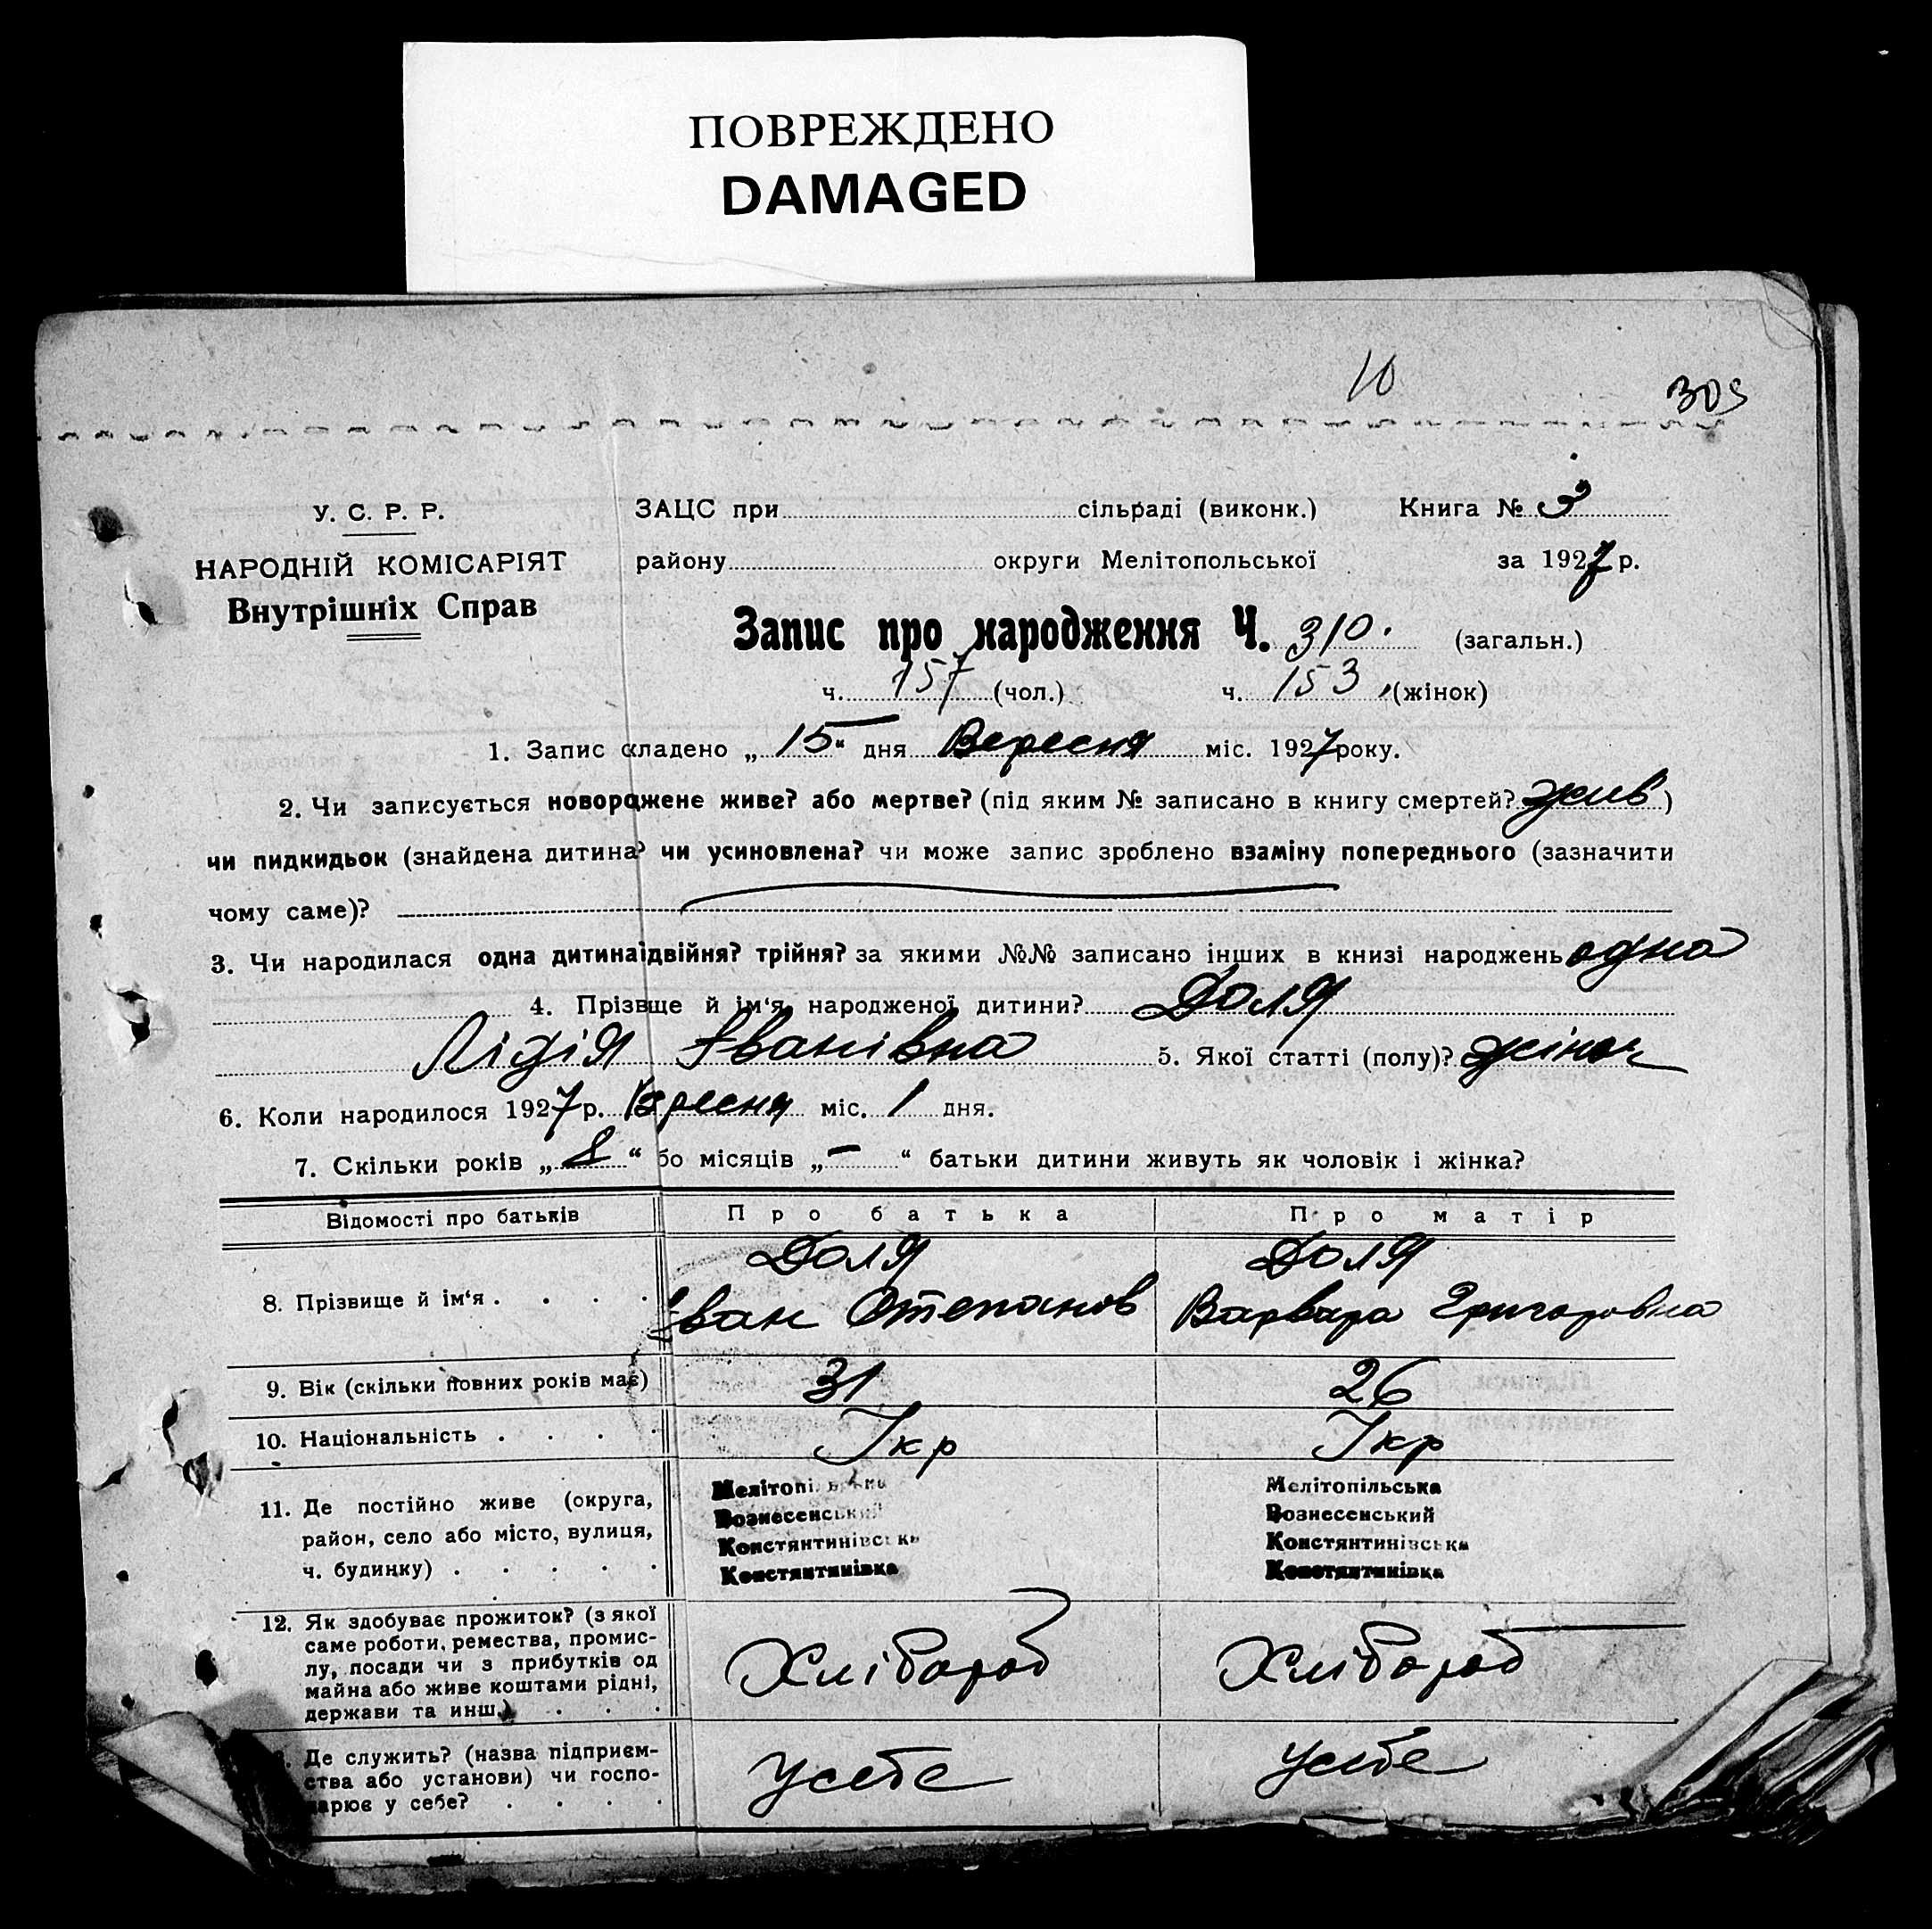 ПОВРЕЖДЕНО
DAMAGED
10
309
У. С. Р. Р.
НАРОДНІЙ КОМІСАРІЯТ
Внутрішніх Справ
ЗАЦС при сільраді (виконк.) Книга № 3
району округи Мелітопольської за 1927 р.
Запис про народження Ч. 310. (загальн.)
ч. 157 (чол.) ч. 153 (жінок)
1. Запис складено „15“ дня Вересня міс. 1927 року.
2. Чи записується новорожене живе? або мертве? (під яким № записано в книгу смертей? жив)
чи пидкидьок (знайдена дитина? чи усиновлена? чи може запис зроблено взаміну попереднього (зазначити
чому саме)?
3. Чи народилася одна дитина? двійня? трійня? за якими №№ записано інших в книзі народжень одна
4. Прізвще й ім‘я народженої дитини? Доля
Лідія Іванівна 5. Якої статті (полу)? жіноч
6. Коли народилося 1927 р. Вересня міс. 1 дня.
7. Скільки років „8“ бо місяців „—“ батьки дитини живуть як чоловік і жінка?
Відомості про батьків Про батька Про матір
8. Прізвище й ім‘я . . . . Доля Іван Степанов Доля Варвара Григоровна
9. Вік (скільки повних років має) 31 26
10. Національність . . . . Укр Укр
11. Де постійно живе (округа, район, село або місто, вулиця, ч. будинку) . . . . .
Мелітопільська
Вознесенський
Констянтинівська
Констянтинівка
Мелітопільська
Вознесенський
Констянтинівська
Констянтинівка
12. Як здобуває прожиток? (з якої
саме роботи, ремества, промис-
лу, посади чи з прибутків од
майна або живе коштами рідні,
держави та инш.) . . .
Хлібороб Хлібороб
Де служить? (назва підприєм-
ства або установи) чи госпо-
дарює у себе? . . . .
Усебе Усебе